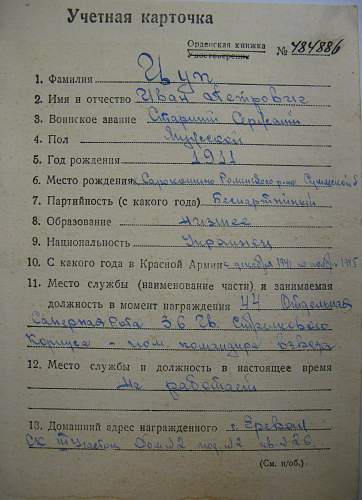 Учетная карточка
Орденская книжка
Удостоверение
№ 484886
1. Фамилия Цуп
2. Имя и отчество Иван Петрович
3. Воинское звание Старший Сержант
4. Пол Мужской
5. Год рождения 1911
6. Место рождения Роменского р-на Сумской о
7. Партийность (с какого года) Беспартийный
8. Образование низшее
9. Национальность Украинец
10. С какого года в Красной Армии с декабря 1941 по 1945
11. Место службы (наименование части) и занимаемая
должность в момент награждения 44 Отдельная
Саперная Рота 36 Гв. Стрелкового
Корпуса - пом. командира взвода
12. Место службы и должность в настоящее время
Не работает
13. Домашний адрес награжденного г. Ереван
СК III участок дом №2 под. №2 кв. №26
(См. н/об.)